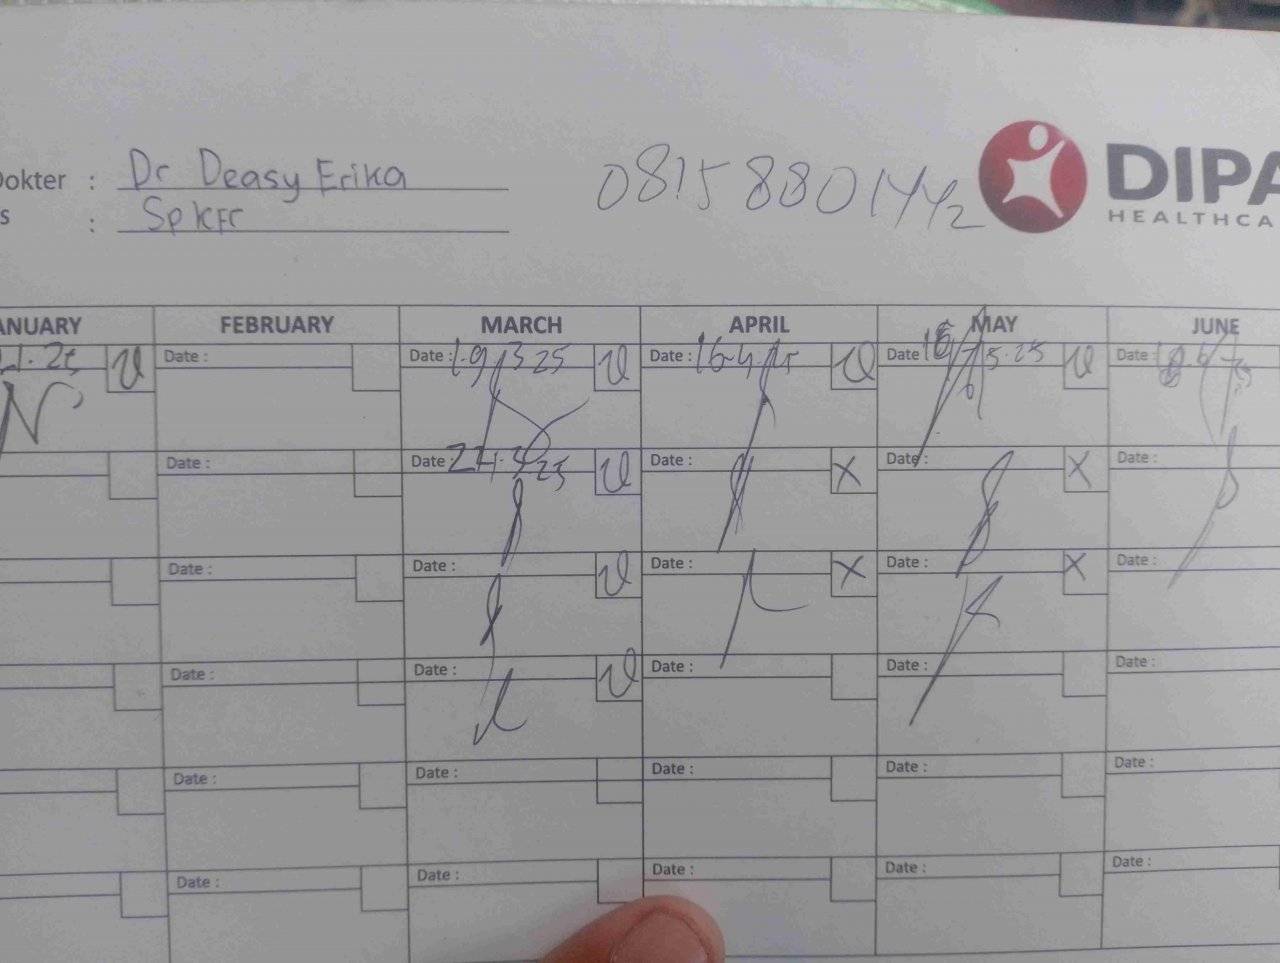 Dokter : Dr Deasy Erika 08158801442
s : SpKFR
DIPA
HEALTHCA
ANUARY FEBRUARY MARCH APRIL MAY JUNE
Date : Date : 19 3 25 Date : 16-4- Date 5.25 Date :
Date : Date : 24.3.25 Date : X Date : X Date :
Date : Date : Date : X Date : X Date :
Date : Date : Date : Date : Date :
Date : Date : Date : Date : Date :
Date : Date : Date : Date : Date :